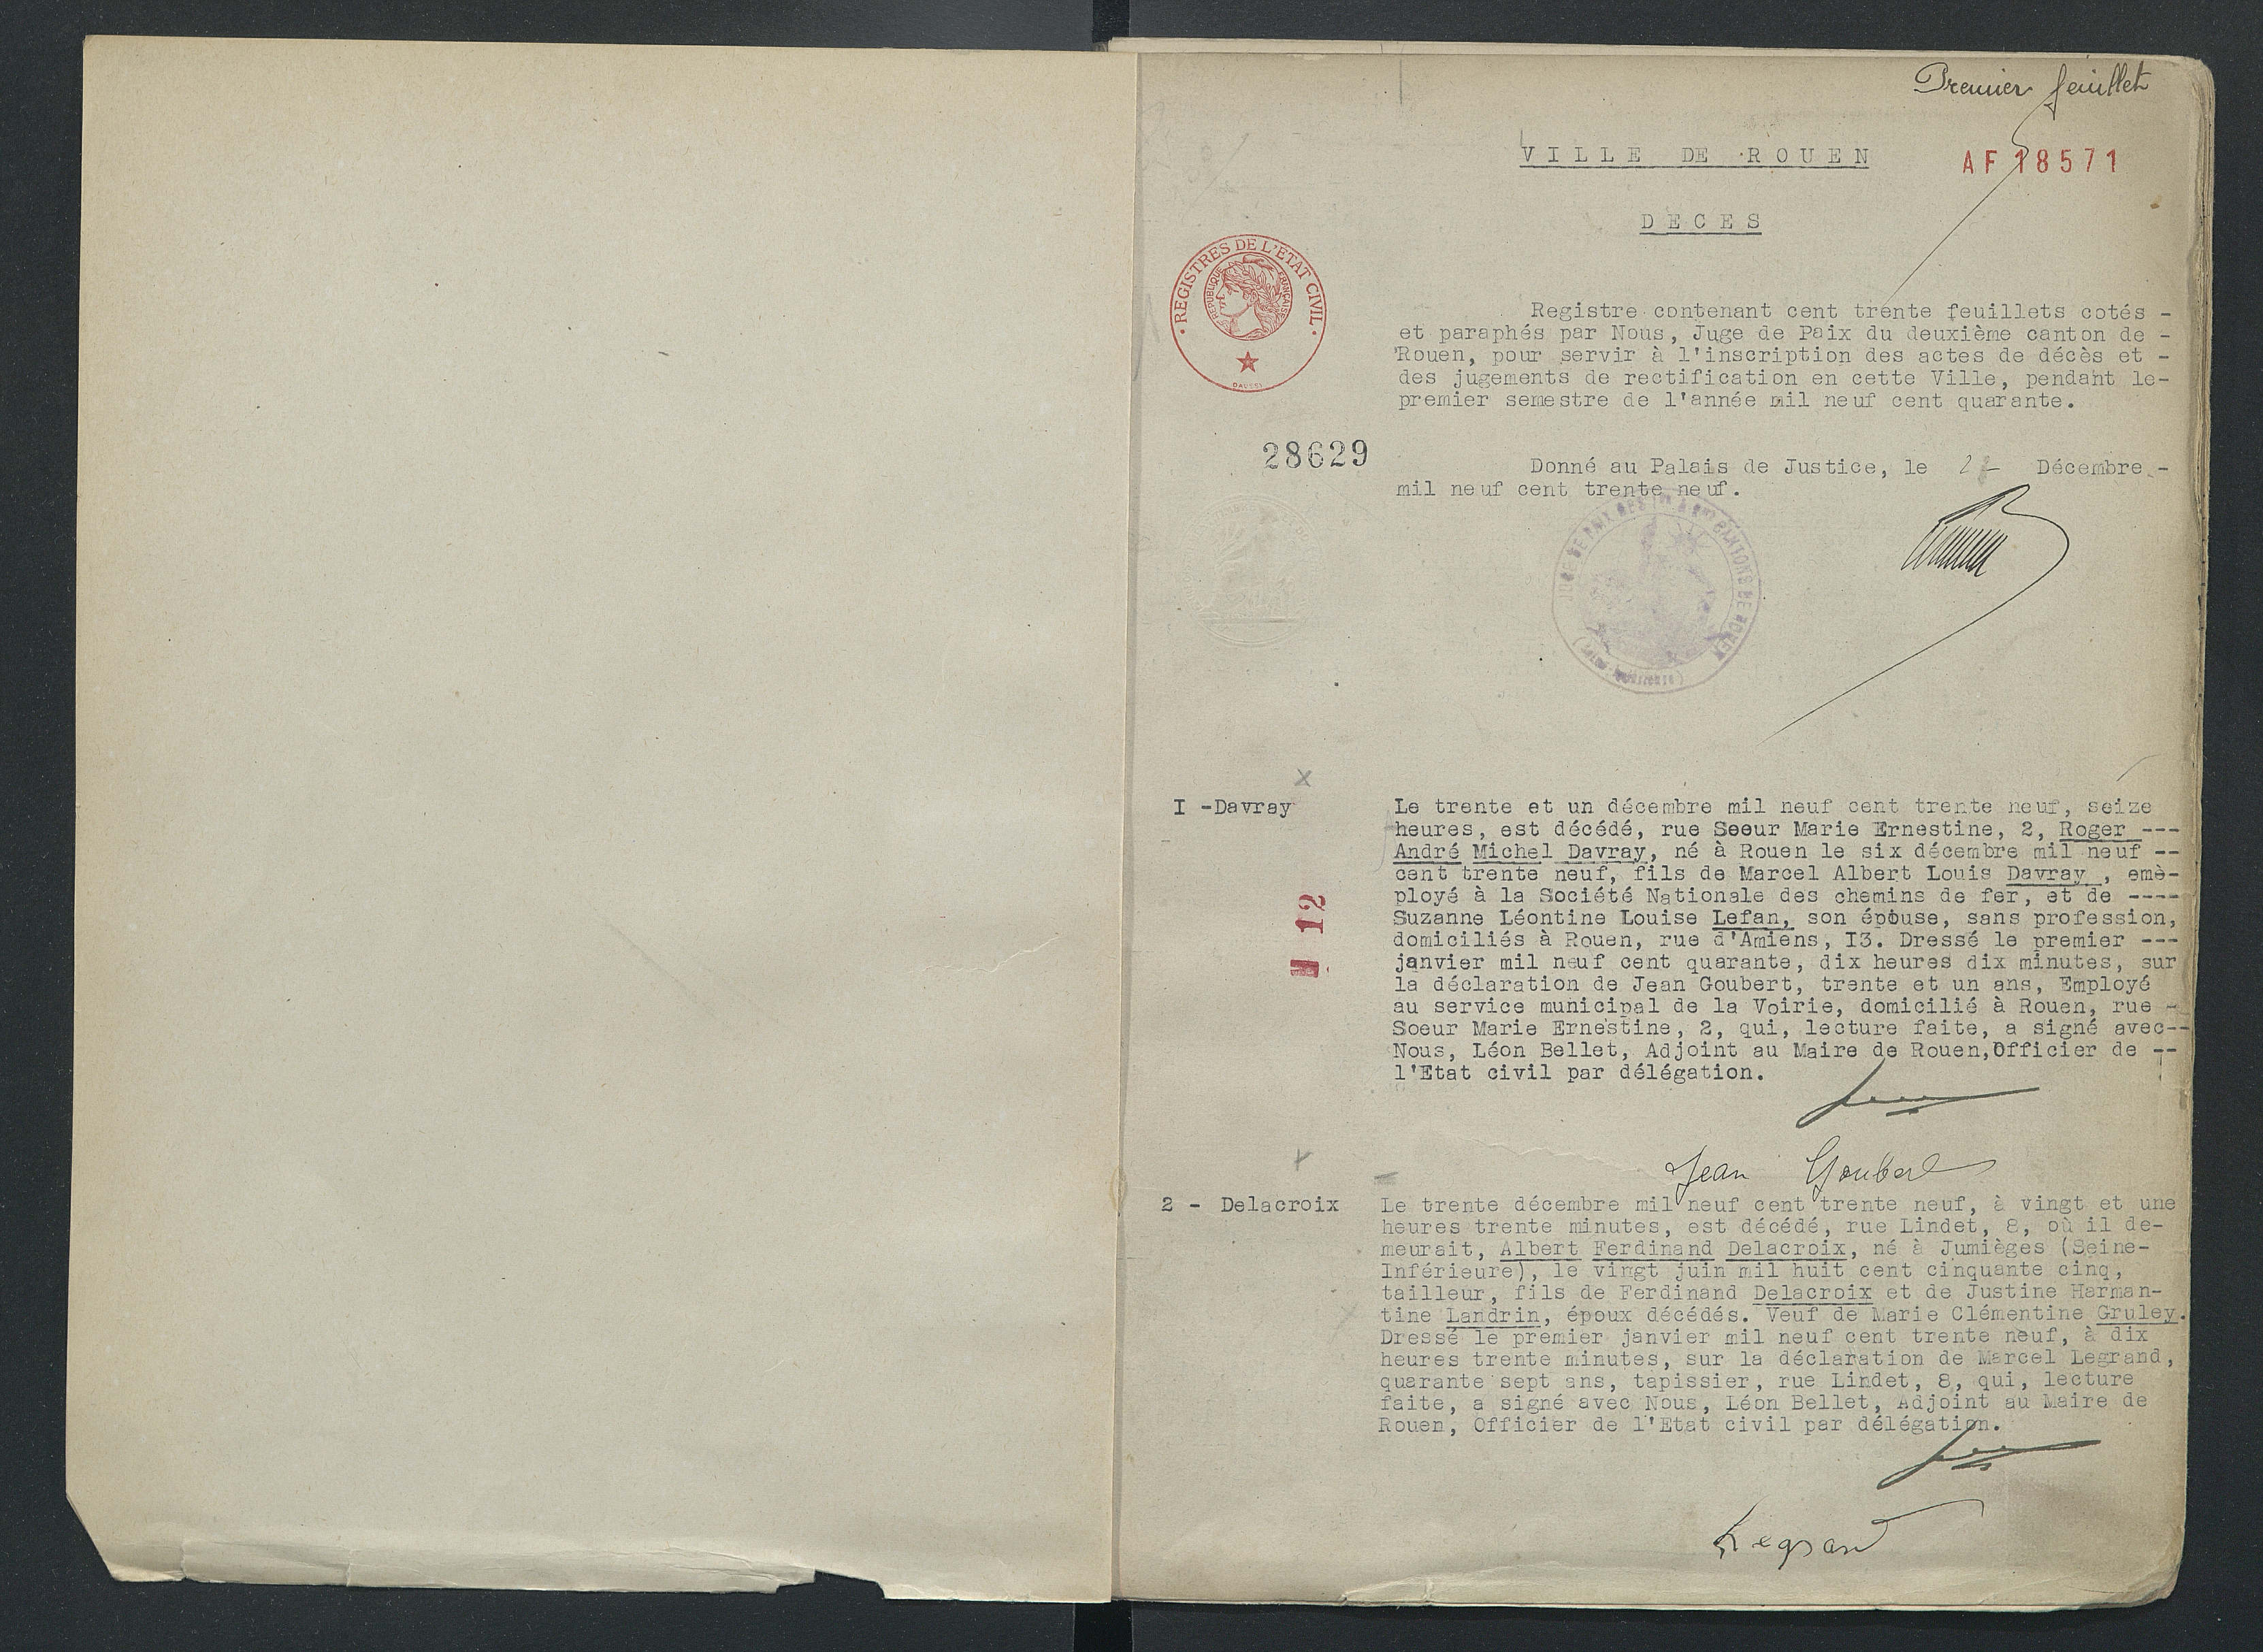 Premier feuillet
VILLE DE ROUEN
AF 18571
DECES
REGISTRES DE L'ETAT CIVIL
REPUBLIQUE FRANÇAISE
Registre contenant cent trente feuillets cotés -
et paraphés par Nous, Juge de Paix du deuxième canton de -
Rouen, pour servir à l'inscription des actes de décès et -
des jugements de rectification en cette Ville, pendant le-
premier semestre de l'année mil neuf cent quarante.
28629
Donné au Palais de Justice, le Décembre -
mil neuf cent trente neuf.
CANTONS DE ROUEN
I -Davray
Le trente et un décembre mil neuf cent trente neuf, seize
heures, est décédé, rue Soeur Marie Ernestine, 2, Roger ---
André Michel Davray, né à Rouen le six décembre mil neuf --
cent trente neuf, fils de Marcel Albert Louis Davray , emè-
ployé à la Société Nationale des chemins de fer, et de ----
Suzanne Léontine Louise Lefan, son épouse, sans profession,
domiciliés à Rouen, rue d'Amiens, I3. Dressé le premier ---
janvier mil neuf cent quarante, dix heures dix minutes, sur
la déclaration de Jean Goubert, trente et un ans, Employé
au service municipal de la Voirie, domicilié à Rouen, rue -
Soeur Marie Ernestine, 2, qui, lecture faite, a signé avec--
Nous, Léon Bellet, Adjoint au Maire de Rouen,Officier de --
l'Etat civil par délégation.
12
Jean Goubert
2 - Delacroix
Le trente décembre mil neuf cent trente neuf, à vingt et une
heures trente minutes, est décédé, rue Lindet, 8, où il de-
meurait, Albert Ferdinand Delacroix, né à Jumièges (Seine-
Inférieure), le vingt juin mil huit cent cinquante cinq,
tailleur, fils de Ferdinand Delacroix et de Justine Harman-
tine Landrin, époux décédés. Veuf de Marie Clémentine Gruley.
Dressé le premier janvier mil neuf cent trente neuf, à dix
heures trente minutes, sur la déclaration de Marcel Legrand,
quarante sept ans, tapissier, rue Lindet, 8, qui, lecture
faite, a signé avec Nous, Léon Bellet, Adjoint au Maire de
Rouen, Officier de l'Etat civil par délégation.
Legrand